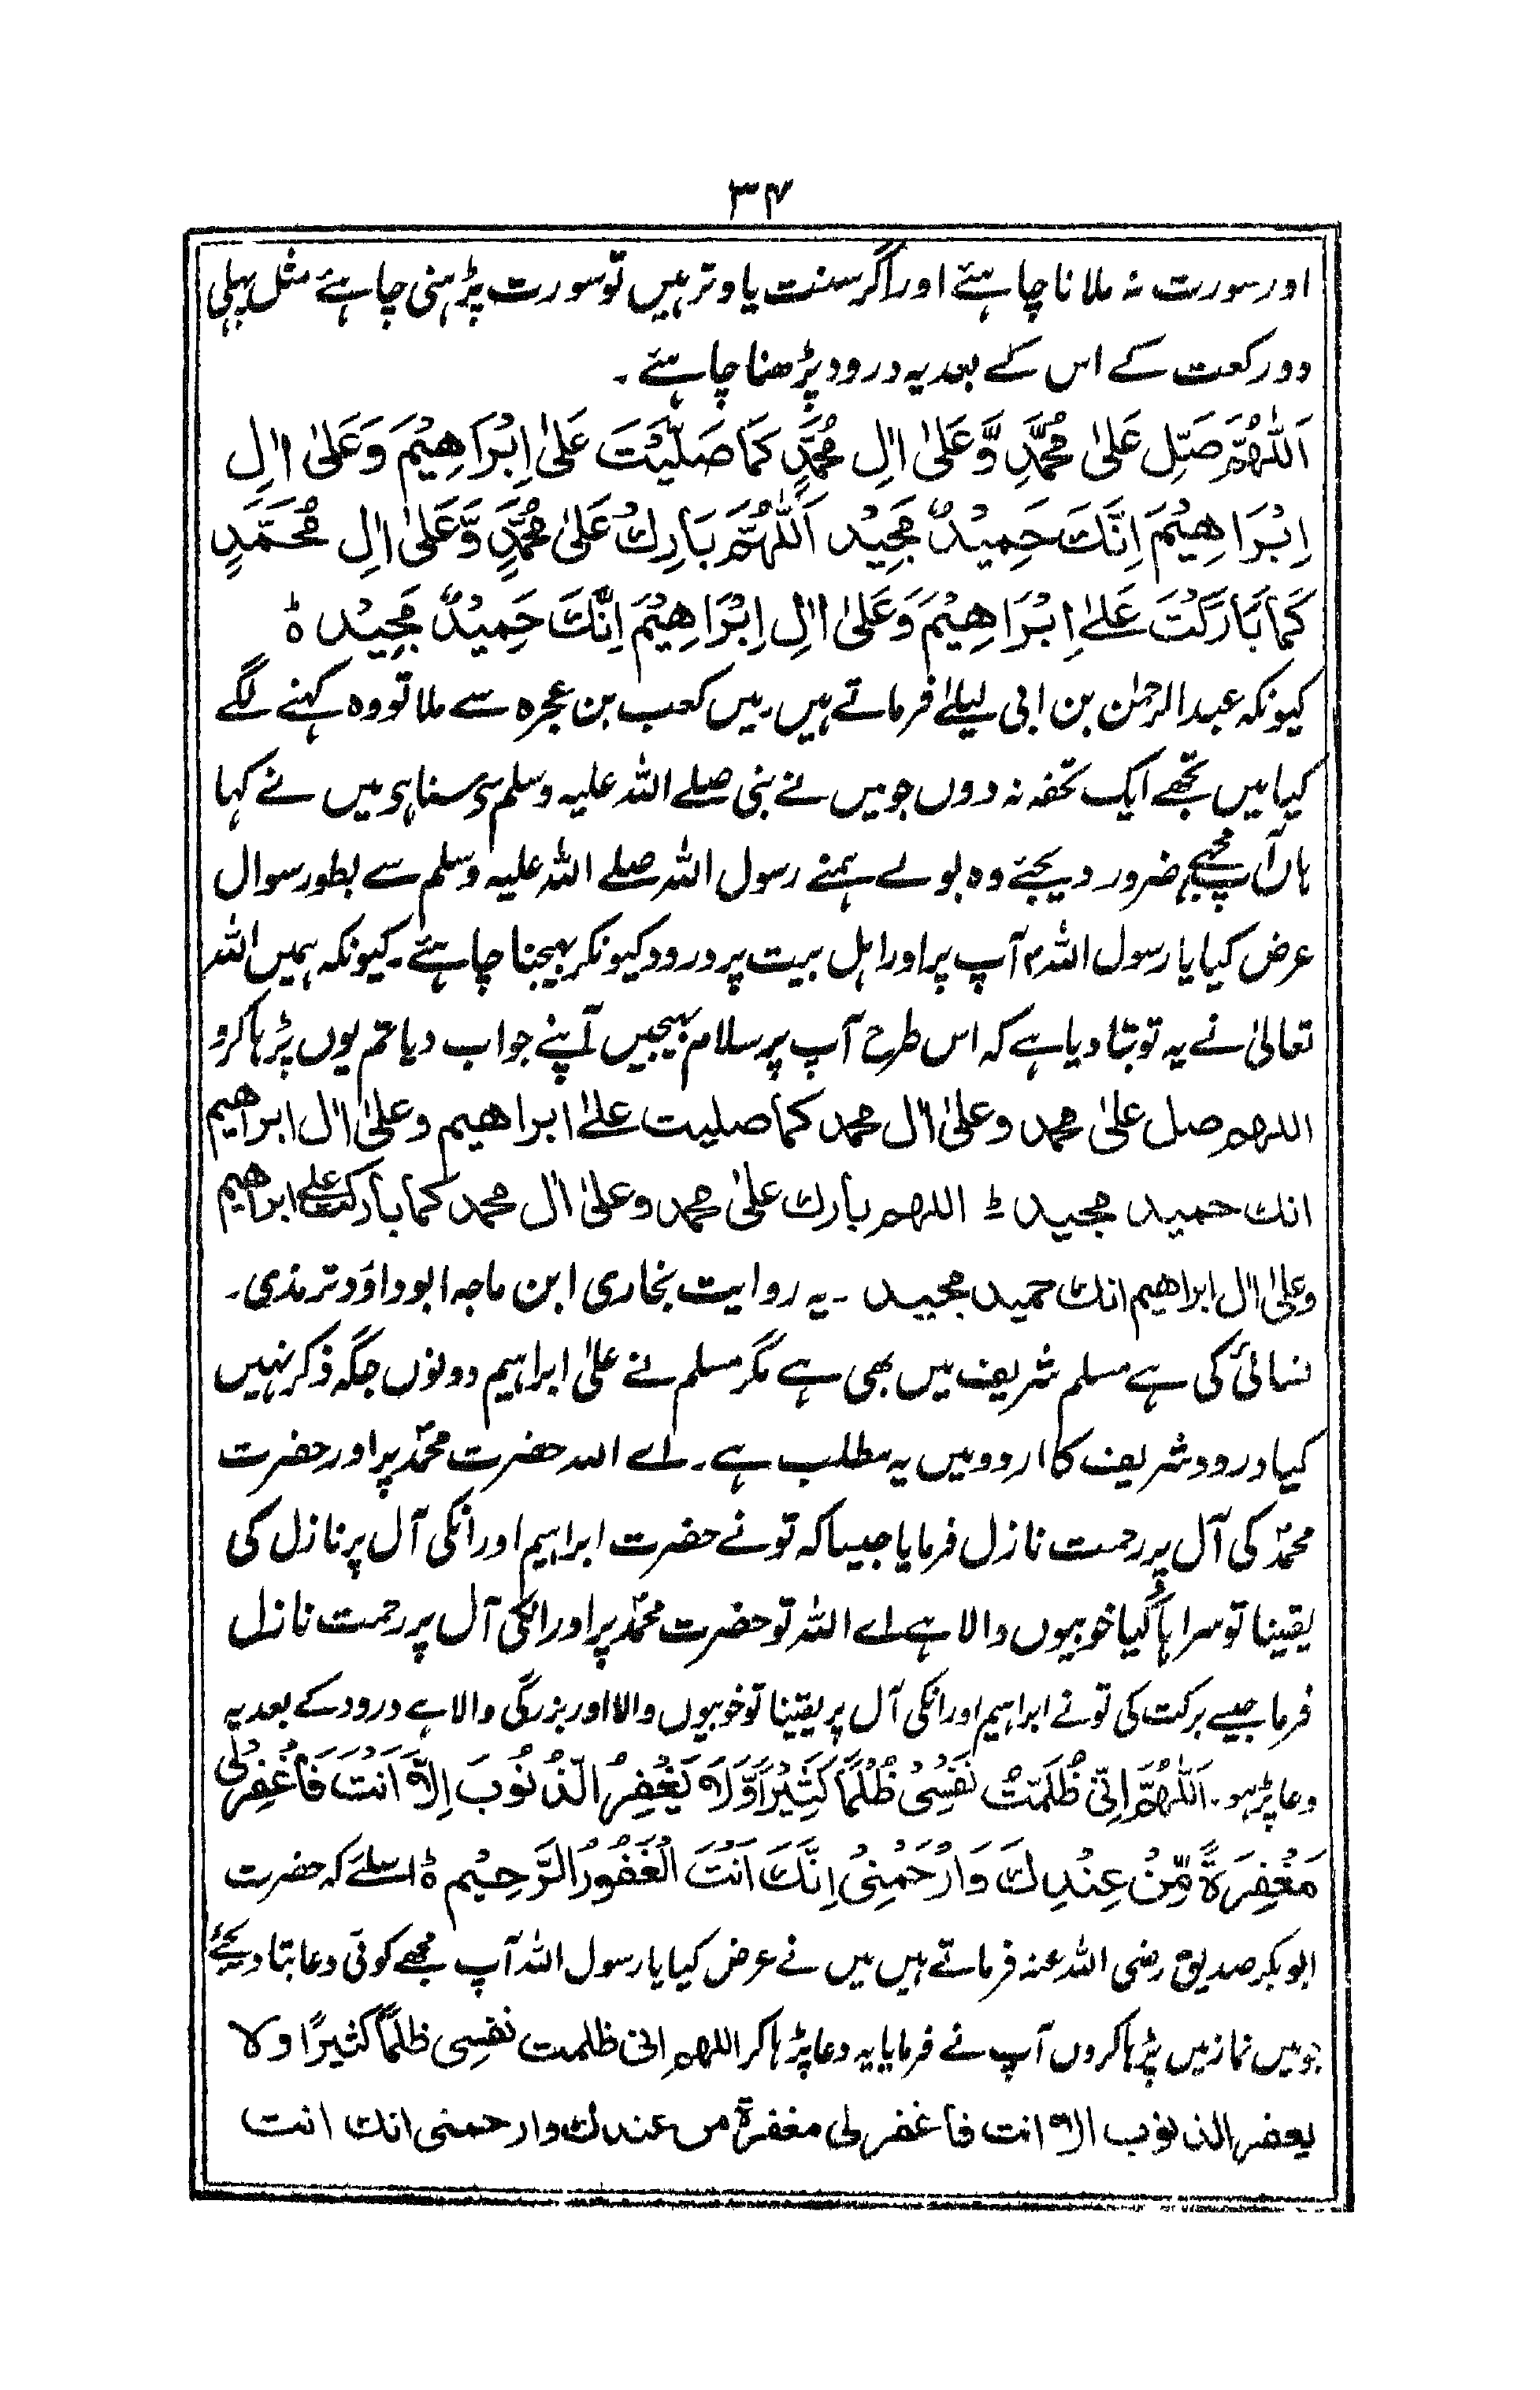 ۳۴
اور سورت نہ ملانا چاہئے اور اگر سنت یا وتر ہیں تو سورت پڑہنی چاہئے مثل پہلی
دو رکعت کے اس کے بعد یہ درود پڑھنا چاہئے ۔
اَللّٰهُمَّ صَلِّ عَلٰى مُحَمَّدٍ وَّعَلٰى اٰلِ مُحَمَّدٍ كَمَا صَلَّيْتَ عَلٰى اِبْرَاهِيْمَ وَعَلٰى اٰلِ
اِبْرَاهِيْمَ اِنَّكَ حَمِيْدٌ مَّجِيْد اَللّٰهُمَّ بَارِكْ عَلٰى مُحَمَّدٍ وَّعَلٰى اٰلِ مُحَمَّدٍ
كَمَا بَارَكْتَ عَلٰے اِبْرَاهِيْمَ وَعَلٰى اٰلِ اِبْرَاهِيْمَ اِنَّكَ حَمِيْدٌ مَّجِيْد ہ
کیونکہ عبدالرحمٰن بن ابی لیلےٰ فرماتے ہیں۔ میں کعب بن عجرہ سے ملا تو وہ کہنے لگے
کیا میں تجھے ایک تحفہ نہ دوں جو میں نے نبی صلے اللہ علیہ وسلم سے سنا ہے میں نے کہا
ہاں آپ مجھے ضرور دیجئے وہ بولے ہمنے رسول اللہ صلے اللہ علیہ وسلم سے بطور سوال
عرض کیا یا رسول اللہ ؐ آپ پر اور اہل بیت پر درود کیونکر بھیجنا چاہئے۔ کیونکہ ہمیں اللہ
تعالیٰ نے یہ تو بتا دیا ہے کہ اس طرح آپ پر سلام بھیجیں آپنے جواب دیا تم یوں پڑہا کرو
اللهم صل علىٰ محمد وعلىٰ اٰل محمد كما صليت علےٰ ابراهيم وعلىٰ اٰل ابراهيم
انك حميد مجيد ؕ اللهم بارك علىٰ محمد وعلىٰ اٰل محمد كما باركت علے ابراهيم
وعلىٰ اٰل ابراهيم انك حميد مجيد ۔ یہ روایت بخاری ابن ماجہ ابوداؤد ترمذی۔
نسائی کی ہے مسلم شریف میں بھی ہے مگر مسلم نے علیٰ ابراہیم دونوں جگہ ذکر نہیں
کیا درود شریف کا اردو میں یہ مطلب ہے۔ اے اللہ حضرت محمدؐ پر اور حضرت
محمدؐ کی آل پر رحمت نازل فرما یا جیسا کہ تو نے حضرت ابراہیم اور انکی آل پر نازل کی
یقینا تو سراہا گیا خوبیوں والا ہے اے اللہ تو حضرت محمدؐ پر اور انکی آل پر رحمت نازل
فرما جیسے برکت کی تو نے ابراہیم اور انکی آل پر یقینا تو خوبیوں والا اور بزرگی والا ہے درود کے بعد یہ
دعا پڑہو۔ اَللّٰهُمَّ اِنِّىْ ظَلَمْتُ نَفْسِىْ ظُلْمًا كَثِيْرًا وَّلَا يَغْفِرُ الذُّنُوْبَ اِلَّا اَنْتَ فَاغْفِرْلِىْ
مَغْفِرَةً مِّنْ عِنْدِكَ وَارْحَمْنِىْ اِنَّكَ اَنْتَ الْغَفُوْرُ الرَّحِيْم ہ اسلئے کہ حضرت
ابوبکر صدیق رضی اللہ عنہ فرماتے ہیں میں نے عرض کیا یا رسول اللہ آپ مجھے کوئی دعا بتا دیجئے
جو میں نماز میں پڑہا کروں آپ نے فرمایا یہ دعا پڑہا کر اللهم انى ظلمت نفسى ظلمًا كثيرًا ولا
يغفر الذنوب الا انت فاغفرلى مغفرة من عندك وارحمنى انك انت